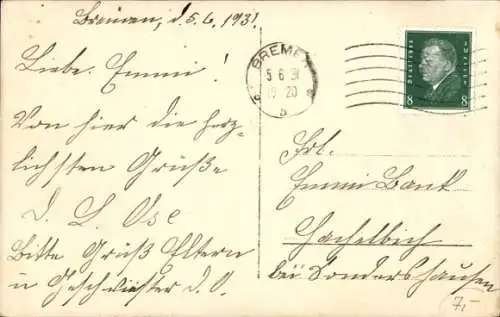 Bremen, d. 5.6.1931
Liebe Emmi!
Von hier die herz-
lichsten Grüße
d. L. Ose
Bitte Grüß Eltern
u Geschwister d. O.
BREMEN
5 6 31
19-20
5
Deutsches Reich
8 8
Frl.
Emmi Bank
Hachelbich
bei Sondershausen
7,-